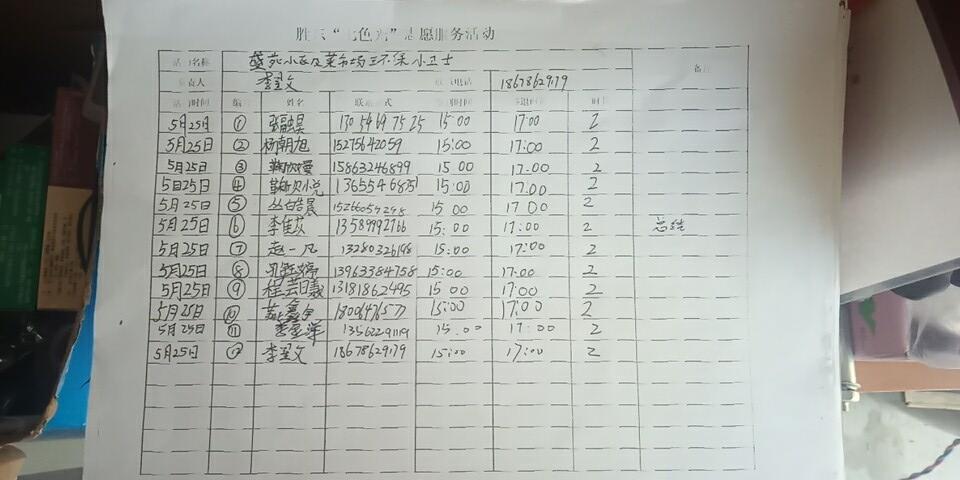 胜 "七色光"志愿服务活动
活动名称 苑小区及菜市场环保小卫士 备注
负责人 李翌文 联系电话 18678629179
活动时间 编 姓名 联系方式 时间 时间 时
5月25日 ① 张融昊 130 5469 75 25 15:00 17:00 2
5月25日 ② 杨朝旭 15275642059 15:00 17:00 2
5月25日 ③ 鞠欣 15863246899 15 00 17.00 2
5日25日 ④ 鞠 小悦 1365546875 15:00 17.00 2
5月25日 ⑤ 丛皓晨 15 00 17 00 2
5月25日 6 李佳 13589992766 15:00 17:00 2 总结
5月25日 ⑦ 赵一凡 13280326198 15:00 17:00 2
5月25日 ⑧ 孔 婷 13963384758 15:00 17:00 2
5月25日 ⑨ 程芸曦 13181862495 15 00 17:00 2
5月25日 ⑩ 15:00 17:00 2
5月25日 ⑪ 13562291119 15.00 17:00 2
5月25日 李翌文 18678629179 15:00 17:00 2